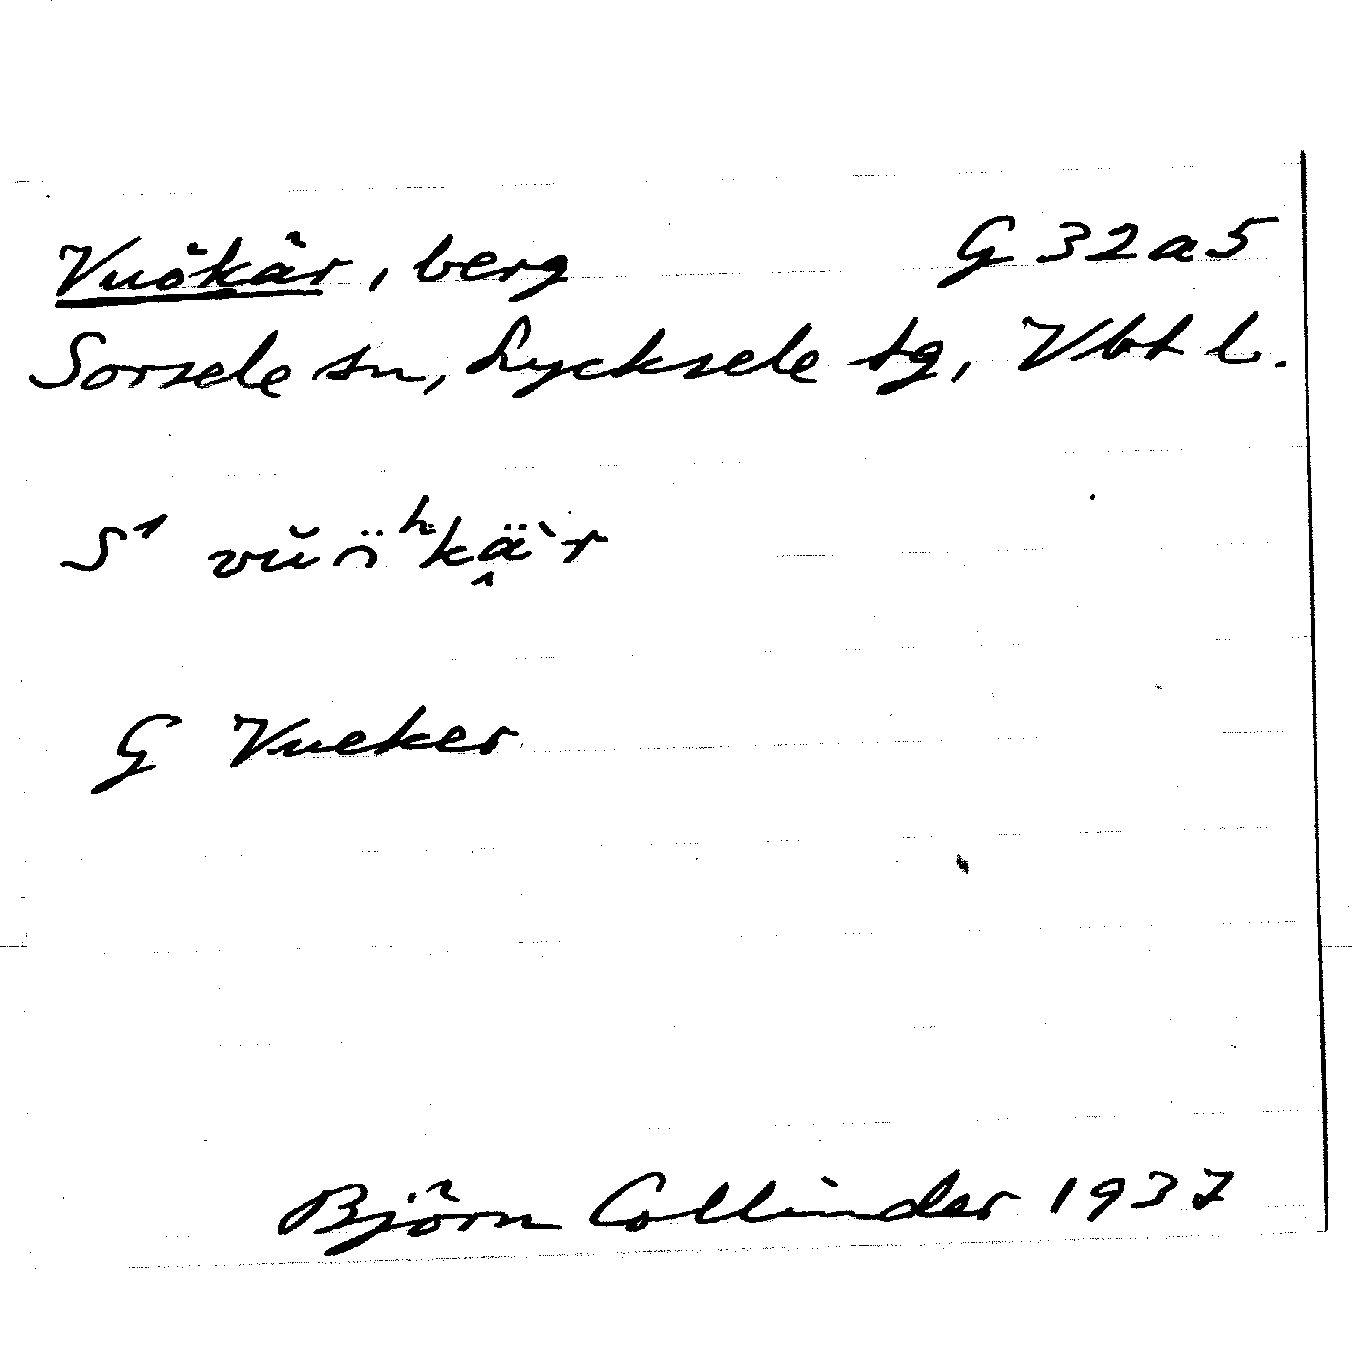 Vuökâr, berg G 32 a 5
Sorsele sn, Lycksele tg, Vbt l.
S¹
G Vueker
Björn Collinder 1937